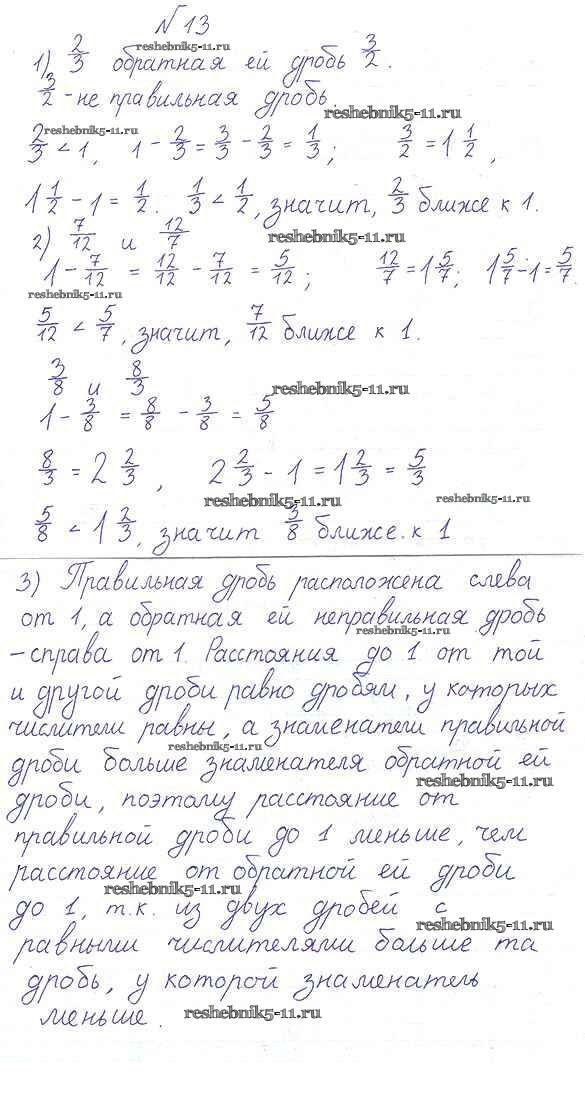 № 13
reshebnik5-11.ru
1) 2/3 обратная ей дробь 3/2.
3/2 - не правильная дробь.
reshebnik5-11.ru
reshebnik5-11.ru
2/3 < 1, 1 - 2/3 = 3/3 - 2/3 = 1/3; 3/2 = 1 1/2,
1 1/2 - 1 = 1/2. 1/3 < 1/2, значит, 2/3 ближе к 1.
2) 7/12 и 12/7
1 - 7/12 = 12/12 - 7/12 = 5/12; 12/7 = 1 5/7; 1 5/7 - 1 = 5/7.
reshebnik5-11.ru
5/12 < 5/7, значит, 7/12 ближе к 1.
3/8 и 8/3
reshebnik5-11.ru
1 - 3/8 = 8/8 - 3/8 = 5/8
8/3 = 2 2/3, 2 2/3 - 1 = 1 2/3 = 5/3
reshebnik5-11.ru
reshebnik5-11.ru
5/8 < 1 2/3, значит 3/8 ближе к 1
3) Правильная дробь расположена слева
от 1, а обратная ей неправильная дробь
reshebnik5-11.ru
- справа от 1. Расстояния до 1 от той
и другой дроби равно дробям, у которых
числители равны, а знаменатели правильной
reshebnik5-11.ru
дроби больше знаменателя обратной ей
reshebnik5-11.ru
дроби, поэтому расстояние от
правильной дроби до 1 меньше, чем
расстояние от обратной ей дроби
reshebnik5-11.ru
до 1, т.к. из двух дробей с
reshebnik5-11.ru
равными числителями больше та
дробь, у которой знаменатель
меньше.
reshebnik5-11.ru